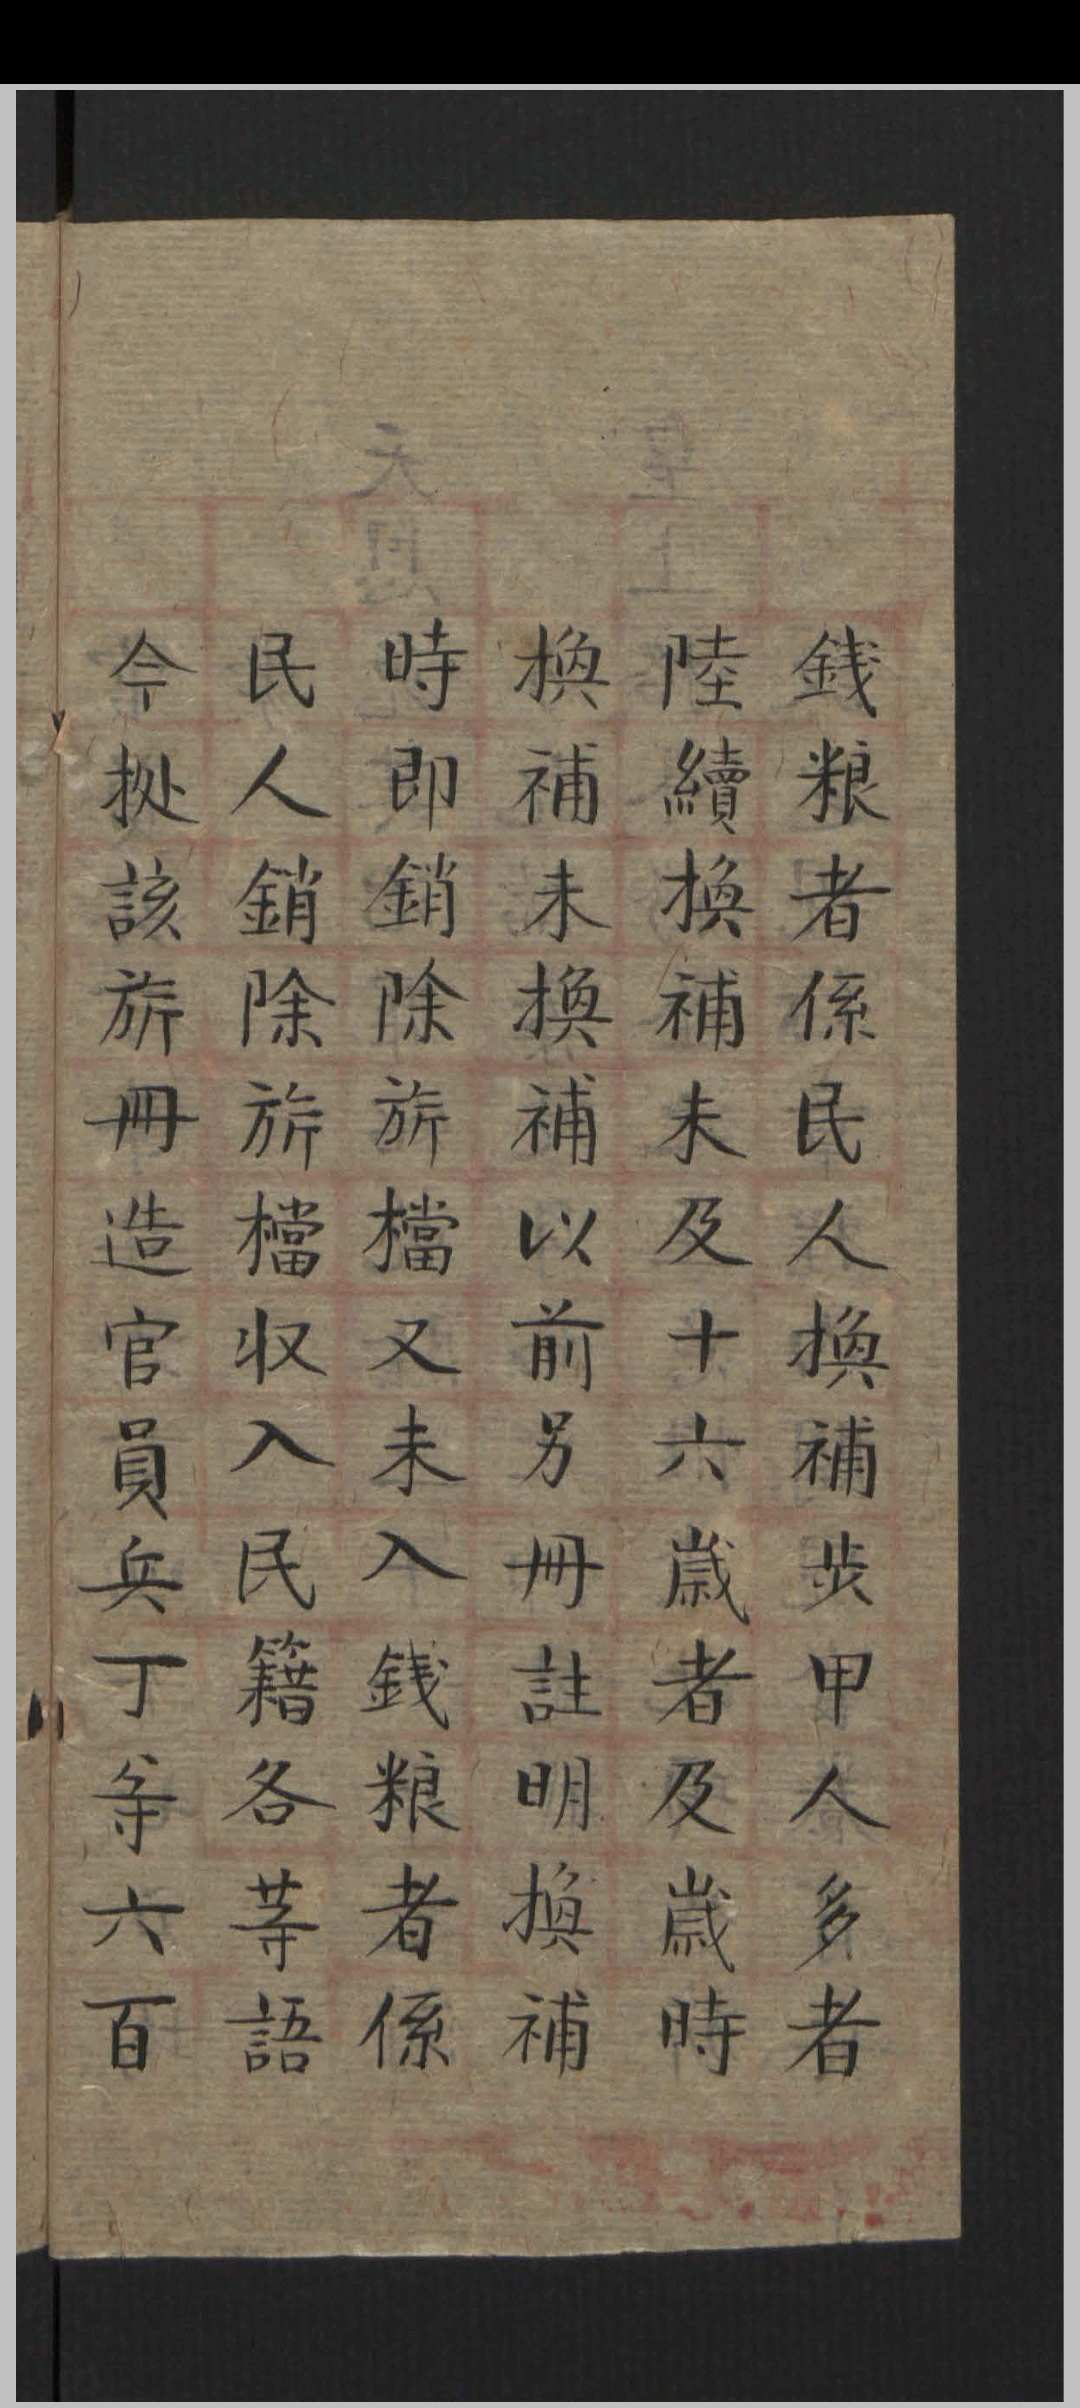 銭粮者係民人換補歩甲人多者
陸續換補未及十六嵗者及嵗時
換補未換補以前另冊註明換補
時即銷除旂檔又未入銭粮者係
民人銷除旂檔収入民籍各等語
今拠該旂冊造官員兵丁等六百